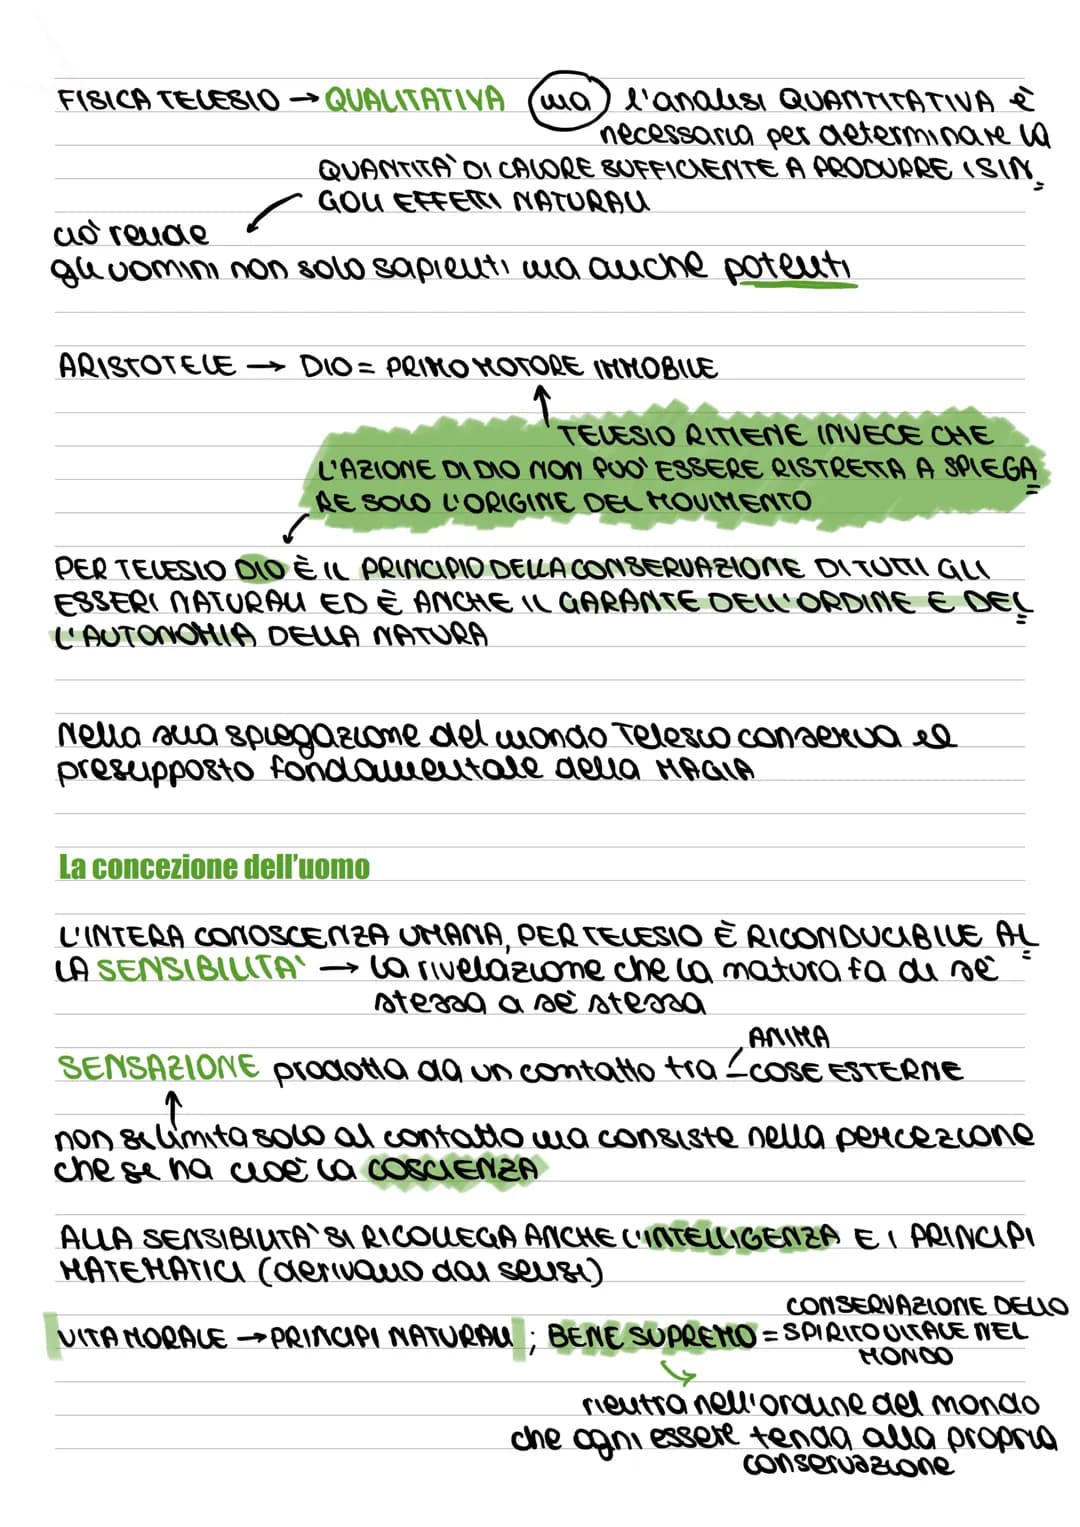 FISICA TELESIO → QUALITATIVA ma l'analisi QUANTITATIVA è
necessaria per determinare la
QUANTITA' DI CALORE SUFFICIENTE A PRODURRE I SIN=
GOLI EFFETTI NATURALI
ciò rende
gli uomini non solo sapienti ma anche potenti
ARISTOTELE → DIO = PRIMO MOTORE IMMOBILE
TELESIO RITIENE INVECE CHE
L'AZIONE DI DIO NON PUO' ESSERE RISTRETTA A SPIEGA=
RE SOLO L'ORIGINE DEL MOVIMENTO
PER TELESIO DIO È IL PRINCIPIO DELLA CONSERVAZIONE DI TUTTI GLI
ESSERI NATURALI ED È ANCHE IL GARANTE DELL'ORDINE E DEL=
L'AUTONOMIA DELLA NATURA
Nella sua spiegazione del mondo Telesio conserva il
presupposto fondamentale della MAGIA
La concezione dell'uomo
L'INTERA CONOSCENZA UMANA, PER TELESIO È RICONDUCIBILE AL=
LA SENSIBILITA' → la rivelazione che la natura fa di sé
stessa a sé stessa
ANIMA
SENSAZIONE prodotta da un contatto tra COSE ESTERNE
non si limita solo al contatto ma consiste nella percezione
che se ha cioè la COSCIENZA
ALLA SENSIBILITA' SI RICOLLEGA ANCHE L'INTELLIGENZA E I PRINCIPI
MATEMATICI (derivano dai sensi)
CONSERVAZIONE DELLO
VITA MORALE → PRINCIPI NATURALI ; BENE SUPREMO = SPIRITO VITALE NEL
MONDO
rientra nell'ordine del mondo
che ogni essere tenda alla propria
conservazione